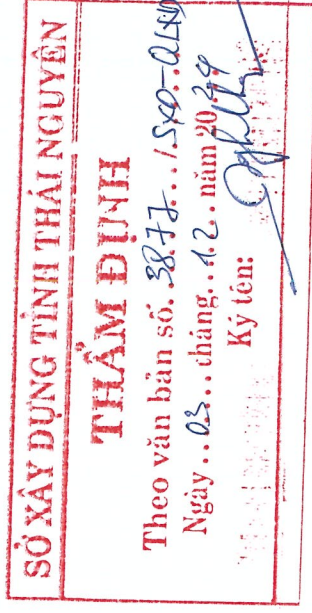 SỞ XÂY DỰNG TỈNH THÁI NGUYÊN
THẨM ĐỊNH
Theo văn bản số. 3877.../.SXD-QLXD
Ngày..03... tháng...12.. năm 2024
Ký tên: